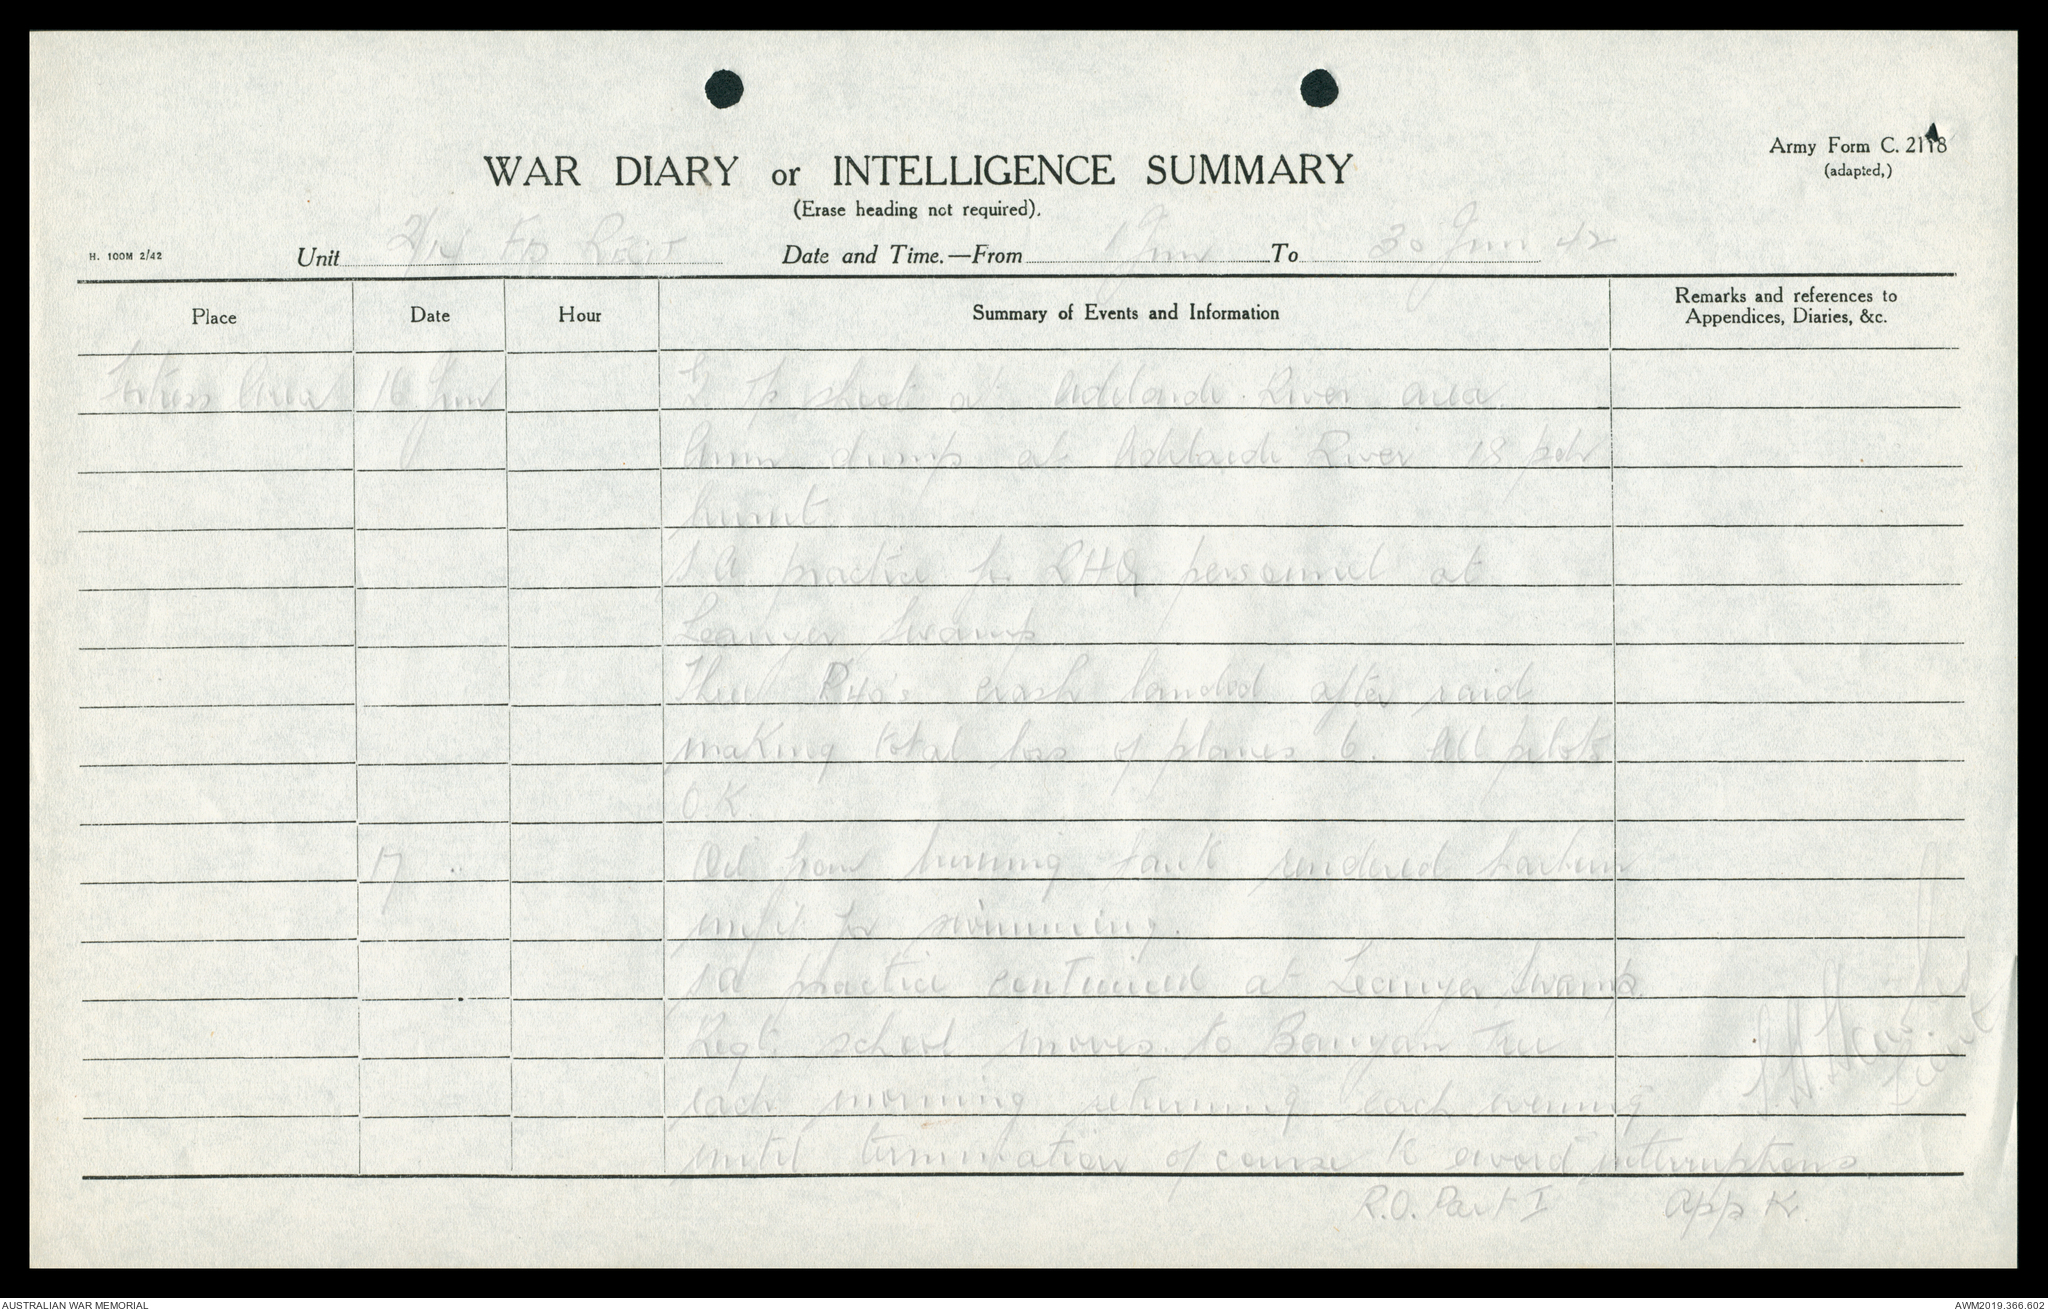 Army Form C. 2118
(adapted,)
WAR DIARY or INTELLIGENCE SUMMARY
(Erase heading not required).
H. 100M 2/42
Unit 2/14 FD REGT Date and Time.—From 1 Jun To 30 Jun 42
Place Date Hour Summary of Events and Information Remarks and references to
Appendices, Diaries, &c.
Fortress Area 16 Jun Tp shoot at Adelaide River area.
Amm dump at Adelaide River 18 pdr
burnt.
S A practice for RHQ personnel at
Leanyer Swamp
Three P40's crash landed after raid
making total loss of planes 6. All pilots
O.K.
17 " Oil from burning tank rendered harbour
unfit for swimming.
S A practice continued at Leanyer Swamp.
Regt. school moves to Banyan Tree
each morning returning each evening
until termination of course to avoid interruptions
R.O. Part I App K.
Lieut
AUSTRALIAN WAR MEMORIAL
AWM2019.366.602